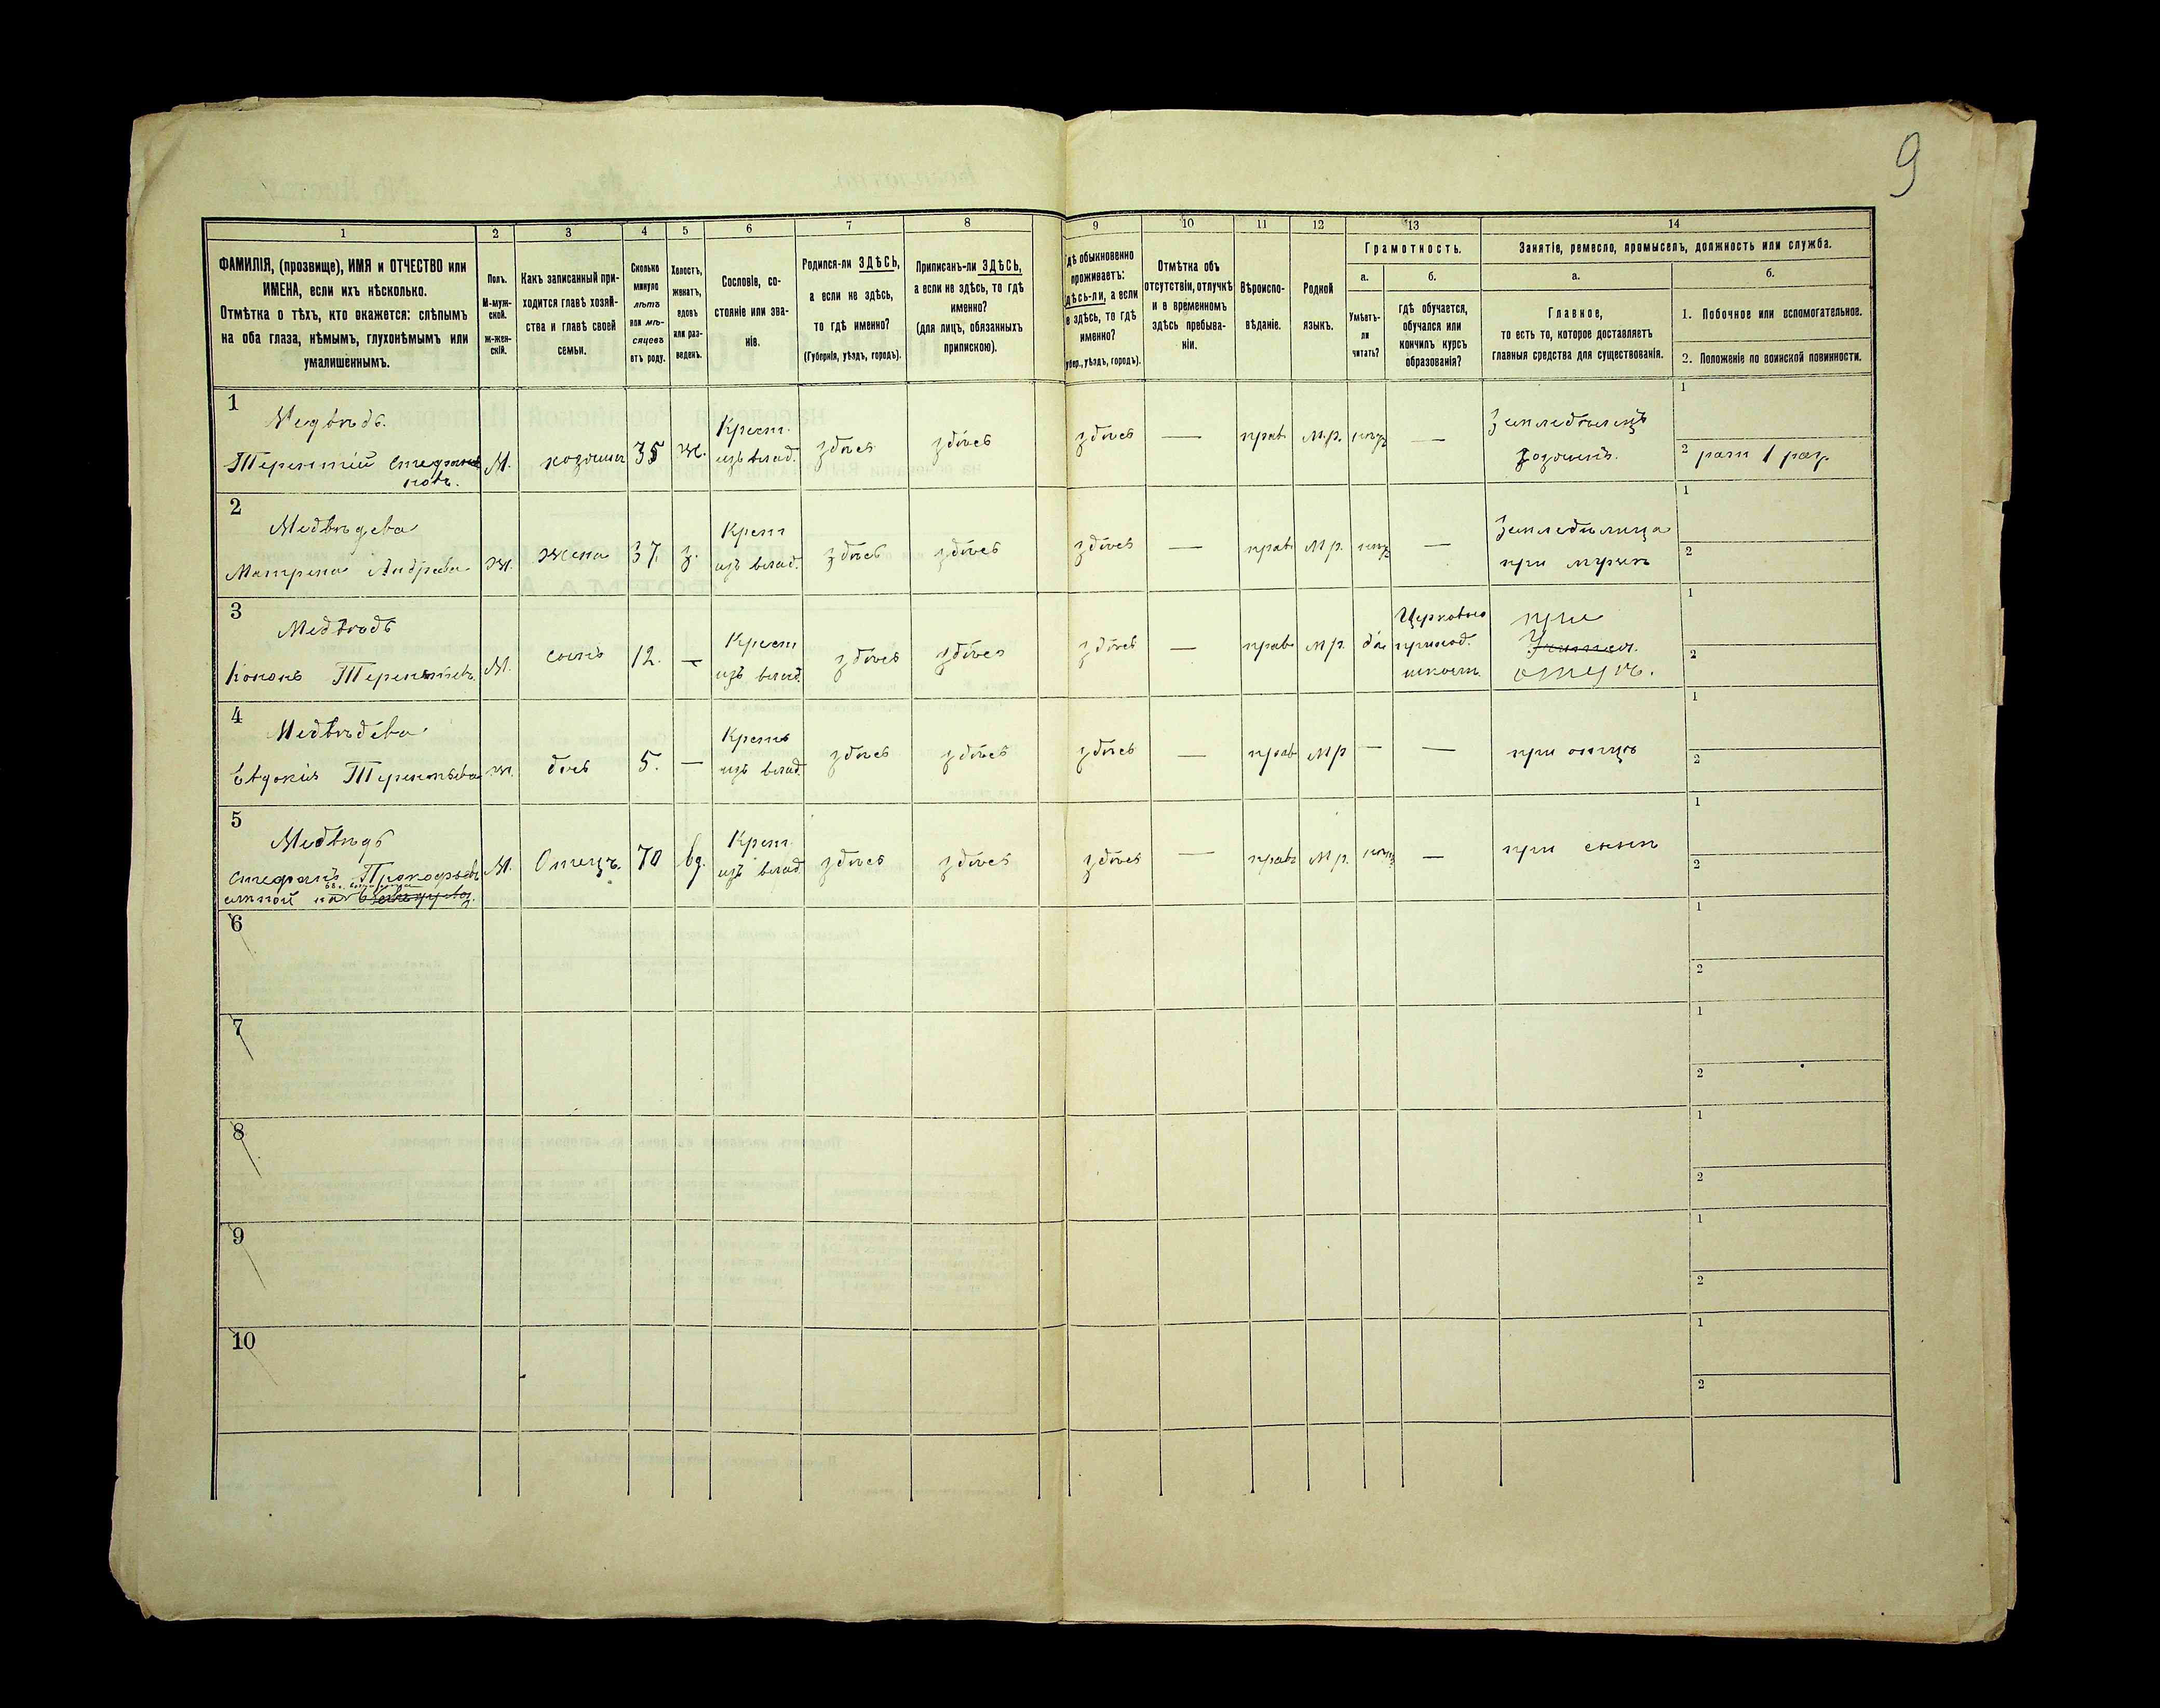 9
1 2 3 4 5 6 7 8 9 10 11 12 13 14
ФАМИЛІЯ, (прозвище), ИМЯ и ОТЧЕСТВО или
ИМЕНА, если ихъ нѣсколько.
Отмѣтка о тѣхъ, кто окажется: слѣпымъ
на оба глаза, нѣмымъ, глухонѣмымъ или
умалишеннымъ.
Полъ.
М-муж-
ской.
ж-жен-
скій.
Какъ записанный при-
ходится главѣ хозяй-
ства и главѣ своей
семьи.
Сколько
минуло
лѣтъ
или мѣ-
сяцевъ
отъ роду.
Холостъ,
женатъ,
вдовъ
или раз-
веденъ.
Сословіе, со-
стояніе или зва-
ніе.
Родился-ли ЗДѢСЬ,
а если не здѣсь,
то гдѣ именно?
(Губернія, уѣздъ, городъ).
Приписанъ-ли ЗДѢСЬ,
а если не здѣсь, то гдѣ
именно?
(для лицъ, обязанныхъ
припискою).
гдѣ обыкновенно
проживаетъ:
здѣсь-ли, а если
не здѣсь, то гдѣ
именно?
уѣздъ, городъ).
Отмѣтка объ
отсутствіи, отлучкѣ
и о временномъ
здѣсь пребыва-
ніи.
Вѣроиспо-
вѣданіе.
Родной
языкъ.
Грамотность.
а. б.
Умѣетъ-
ли
читать?
гдѣ обучается,
обучался или
кончилъ курсъ
образованія?
Занятіе, ремесло, промыселъ, должность или служба.
а. б.
Главное,
то есть то, которое доставляетъ
главныя средства для существованія.
1. Побочное или вспомогательное.
2. Положеніе по воинской повинности.
1
Медвѣдь.
Терентій
М. 35 ж. Крест. здѣсь здѣсь здѣсь — прав М.р. — Земледѣлецъ 1
изъ влад. 2 рат 1 раз.
2
Медвѣдева
Матрена Андрева ж. жена 37. з. Крест здѣсь здѣсь здѣсь — прав М р. — 1
изъ влад. при мужѣ 2
3
Медвѣдь
Кононъ М. сынъ 12. — Крест здѣсь здѣсь здѣсь — прав М р. да Церковно при 1
изъ влад. приход. 2
школѣ отцѣ.
4
Медвѣдева
Евдокія Терентьева ж. дочь 5. — Крест здѣсь здѣсь здѣсь — прав М р — — при отцѣ 1
изъ влад. 2
5
Медвѣдь
Стефанъ Прокофьевъ М. Отецъ. 70 вд. Крест. здѣсь здѣсь здѣсь — прав М р. — при сынѣ 1
изъ влад. 2
6 1
2
7 1
2
8 1
2
9 1
2
10 1
2